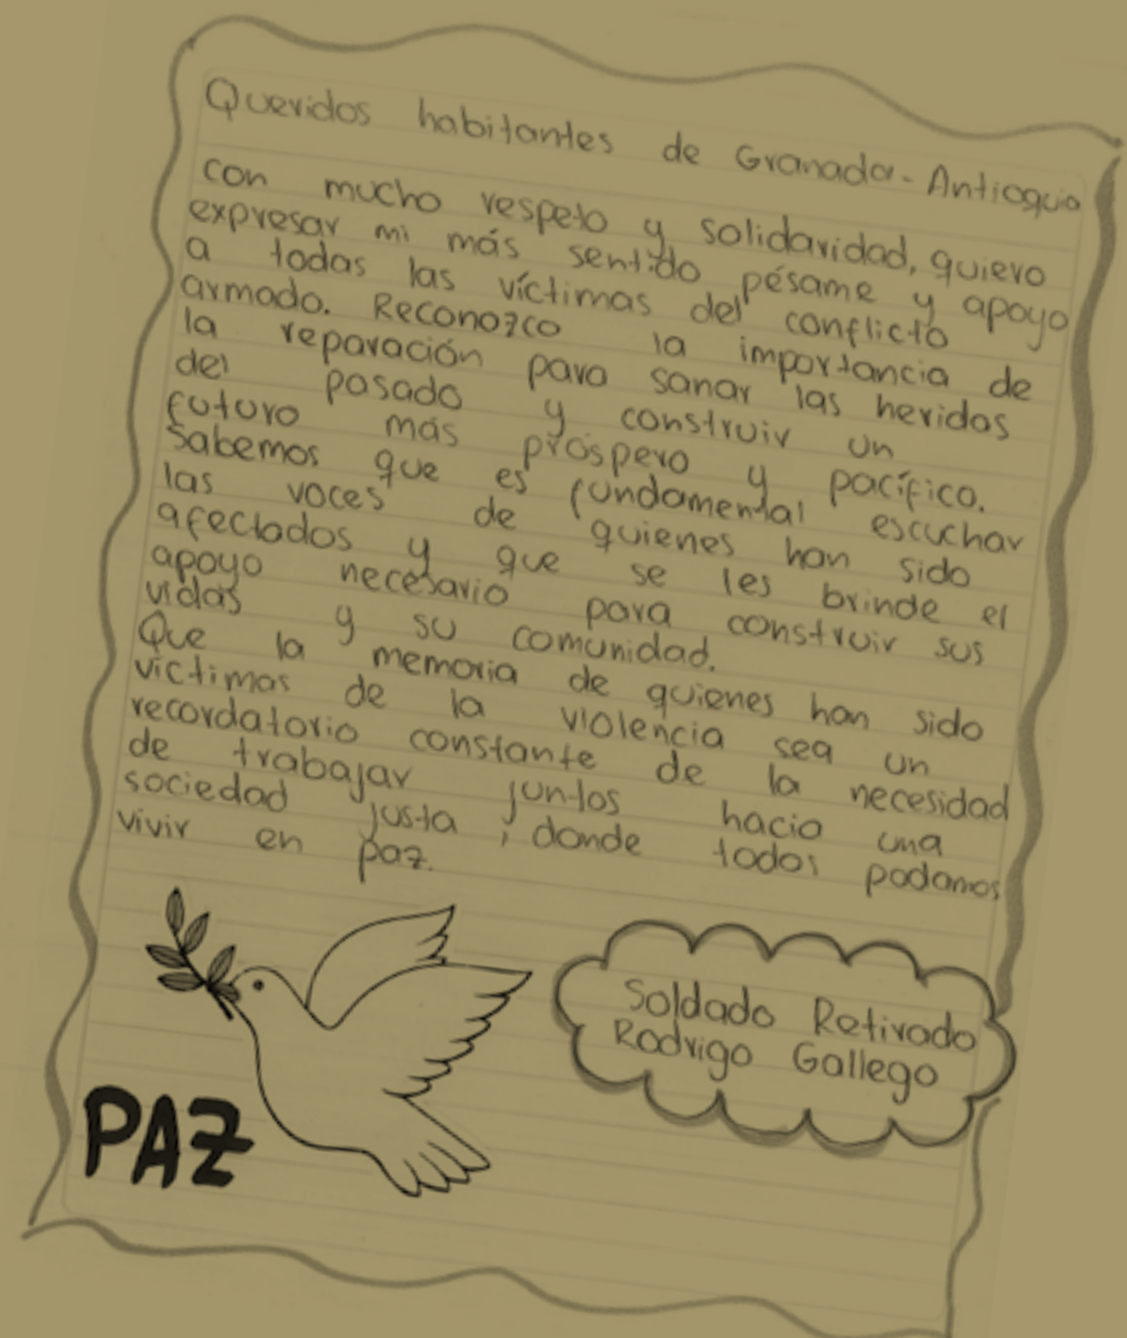 Queridos habitantes de Granada - Antioquia
con mucho respeto y solidaridad, quiero
expresar mi más sentido pésame y apoyo
a todas las víctimas del conflicto
armado. Reconozco la importancia de
la reparación para sanar las heridas
del pasado y construir un
futuro más próspero y pacífico.
Sabemos que es fundamental escuchar
las voces de quienes han sido
afectados y que se les brinde el
apoyo necesario para construir sus
vidas y su comunidad.
Que la memoria de quienes han sido
víctimas de la violencia sea un
recordatorio constante de la necesidad
de trabajar juntos hacia una
sociedad justa, donde todos podamos
vivir en paz.
PAZ
Soldado Retirado
Rodrigo Gallego